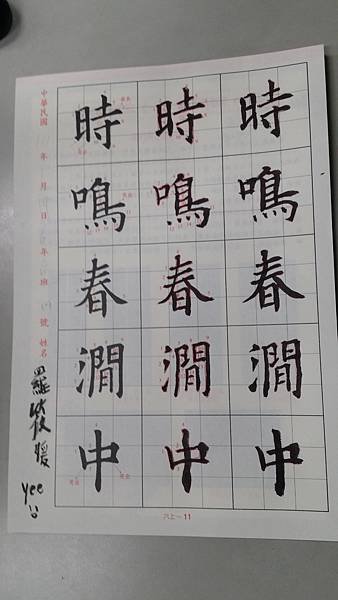 時 時 時
鳴 鳴 鳴
春 春 春
澗 澗 澗
中 中 中
中華民國 年 月 日 年 班 號 姓名
羅筱媛
yee
六上－11